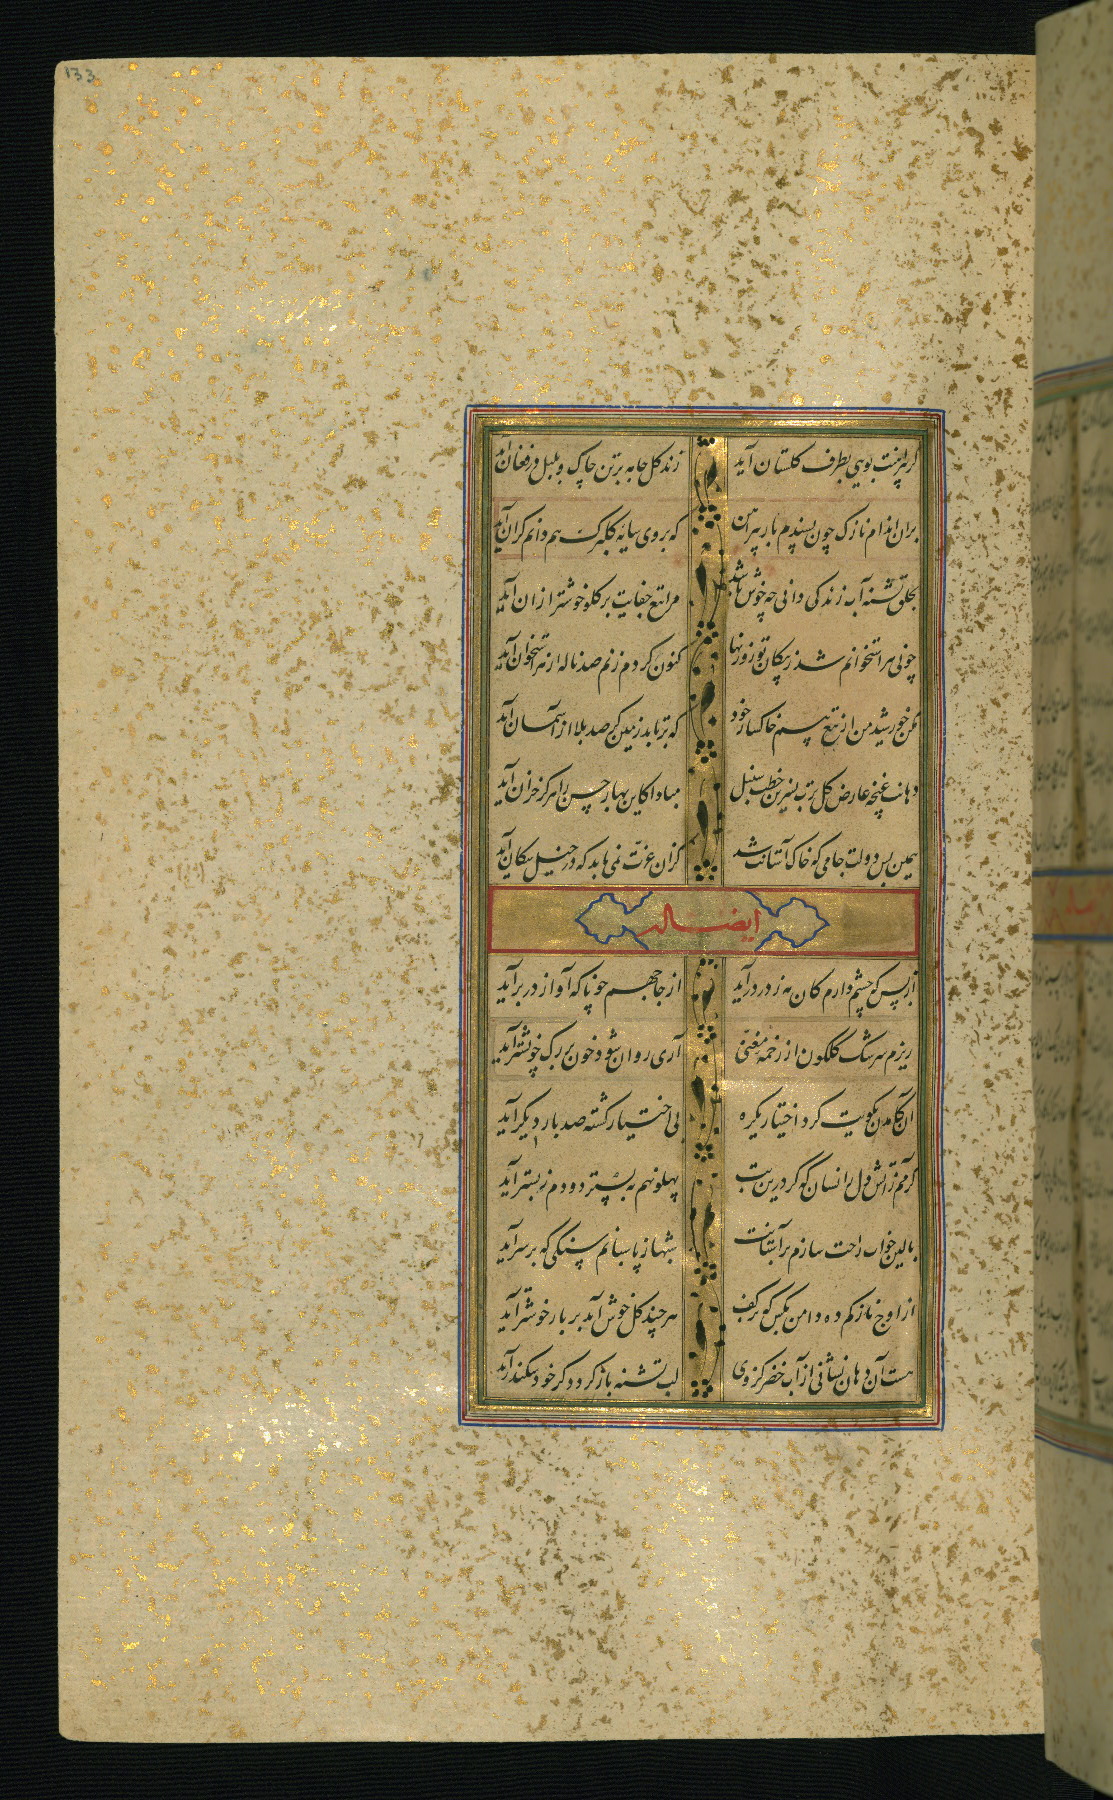 133
گر از پیراهنت بویی بطرف گلستان آید زند گل جامه بر تن چاک و بلبل در فغان آید
بران اندام نازک چون پسندم بار پیراهن که بر وی سایهٔ گلبرگ هم دانم گران آید
بحلق تشنه آب زندگی دانی چه خوش باشد مرا تیغ جفایت بر گلو خوشتر ازان آید
چو نی هر استخوانم شد ز پیکان تو روزنها کنون گر دم زنم صد ناله از هر استخوان آید
مکن خورشید من از تیغ بیم خاکسار خود که برتابد زمین گر صد بلا از آسمان آید
دهانت غنچه عارض گل لبت نسرین خطت سنبل مبادا کاین بهار حسن را هرگز خزان آید
همین بس دولت جامی که خاک آستانت شد کزان عزت نمی‌یابد که در خیل سگان آید
ایضا له
از بس که چشم دارم کان مه ز در درآید از جا جهم چو ناگه آواز در برآید
ریزم سرشک گلگون از زخمهٔ مغنی آری روان شود خون بر رگ چو نشتر آید
آن کامدن بکویت کرد اختیار یکره بی اختیار گشته صد بار دیگر آید
گرمم ز آتش دل زانسان که گر درین تب پهلو نهم به بستر دودم ز بستر آید
بالین خواب راحت سازم بر آستانت شبها ز پاسبانم سنگی که بر سر آید
از اوج ناز کم ده دامن بکس که بر کف هر چند گل خوش آید بر بار خوشتر آید
هست آن دهان نشانی از آب خضر کز وی لب تشنه باز گردد گر خود سکندر آید